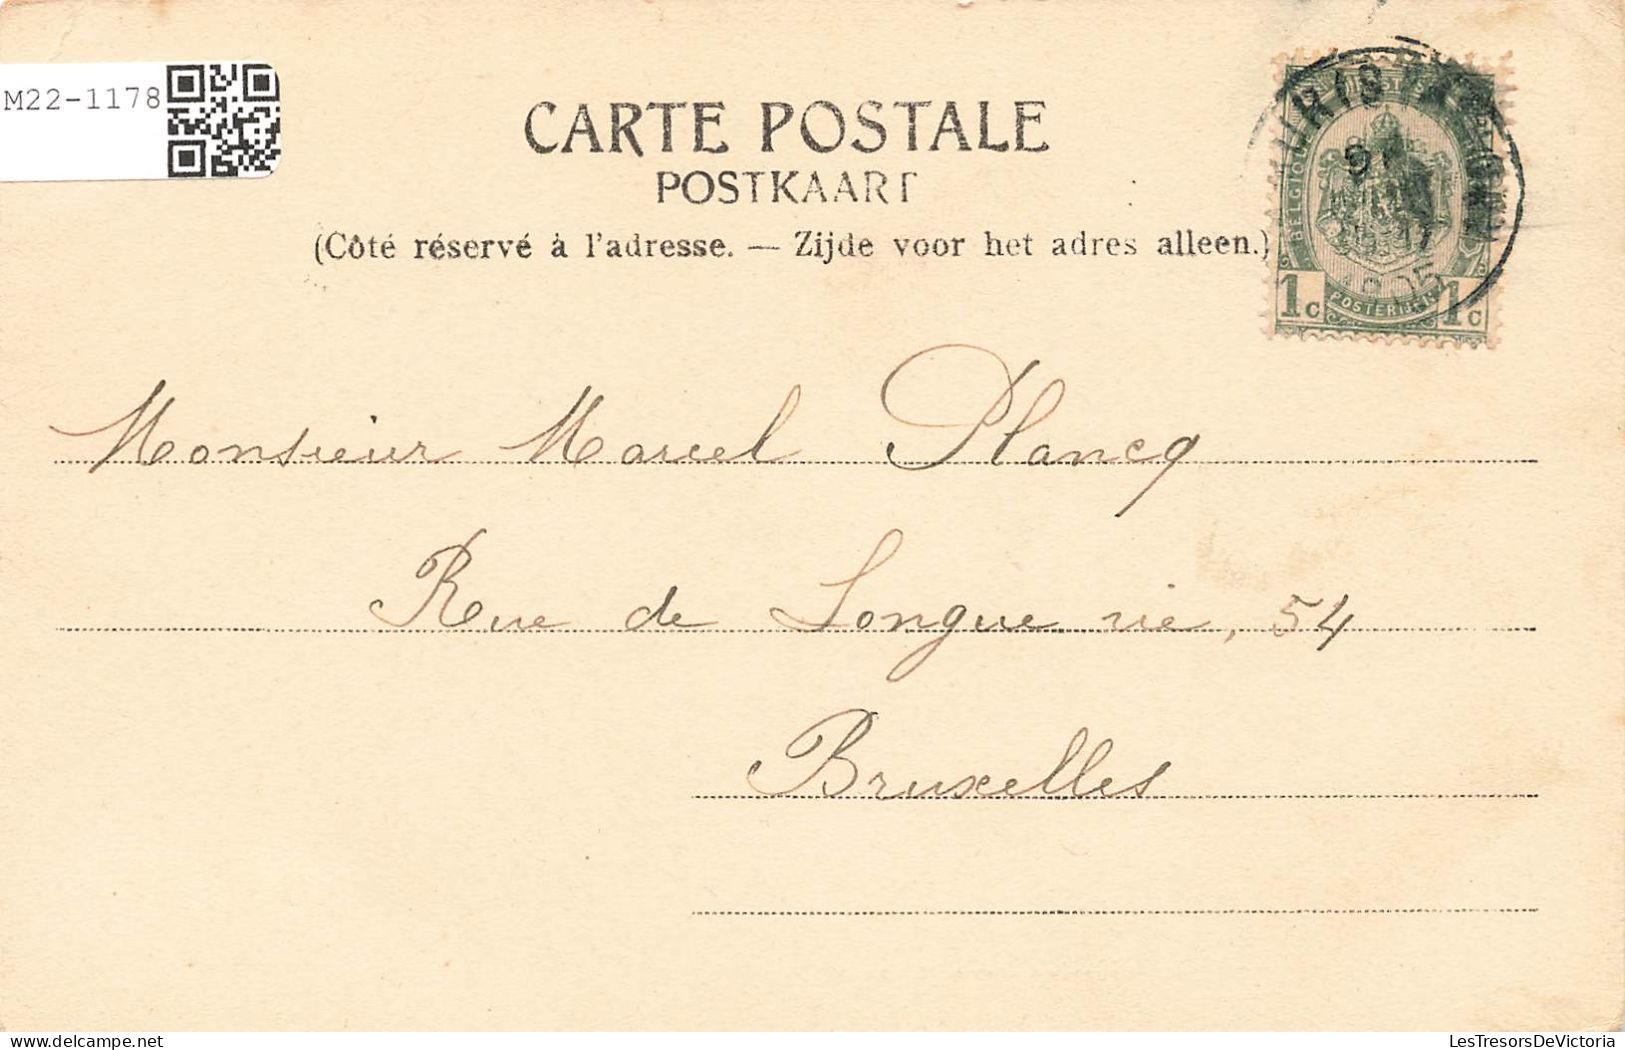 M22-1178
CARTE POSTALE
POSTKAART
(Côté réservé à l'adresse. — Zijde voor het adres alleen.)
BELGIQUE
POSTERIJEN
1c 1c
1905
Monsieur Marcel Plancq
Rue de Longue vie, 54
Bruxelles
LesTresorsDeVictoria